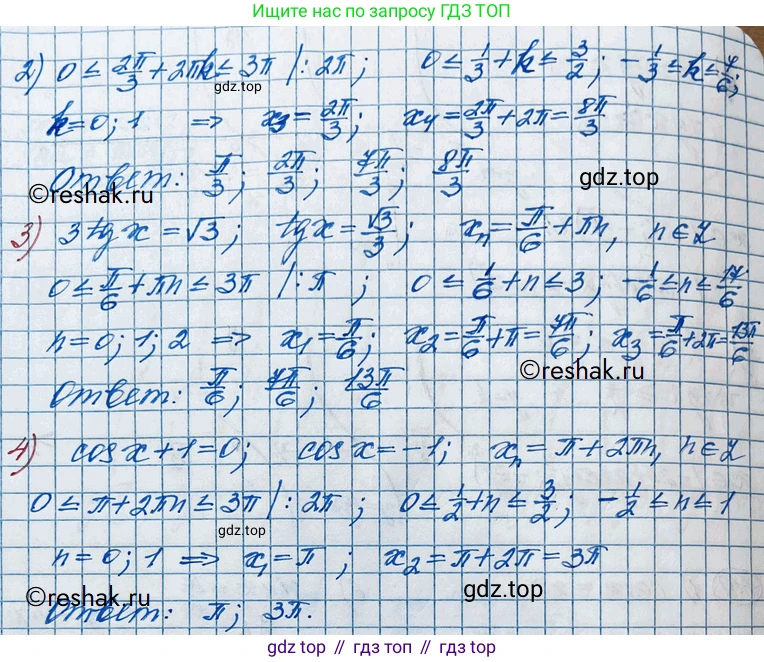 Ищите нас по запросу ГДЗ ТОП
2) 0 ≤ 2π/3 + 2πk ≤ 3π |: 2π; 0 ≤ 1/3 + k ≤ 3/2; -1/3 ≤ k ≤ 7/6;
gdz.top
k = 0; 1 ⇒ x₃ = 2π/3; x₄ = 2π/3 + 2π = 8π/3
Ответ: π/3; 2π/3; 7π/3; 8π/3
gdz.top
©reshak.ru
3) 3 tg x = √3; tg x = √3/3; xₙ = π/6 + πn, n ∈ Z
0 ≤ π/6 + πn ≤ 3π |: π; 0 ≤ 1/6 + n ≤ 3; -1/6 ≤ n ≤ 17/6
n = 0; 1; 2 ⇒ x₁ = π/6; x₂ = π/6 + π = 7π/6; x₃ = π/6 + 2π = 13π/6
©reshak.ru
Ответ: π/6; 7π/6; 13π/6
4) cos x + 1 = 0; cos x = -1; xₙ = π + 2πn, n ∈ Z
0 ≤ π + 2πn ≤ 3π |: 2π; 0 ≤ 1/2 + n ≤ 3/2; -1/2 ≤ n ≤ 1
gdz.top
n = 0; 1 ⇒ x₁ = π; x₂ = π + 2π = 3π
gdz.top
©reshak.ru
Ответ: π; 3π.
gdz.top // гдз топ // gdz.top // гдз топ // gdz.top